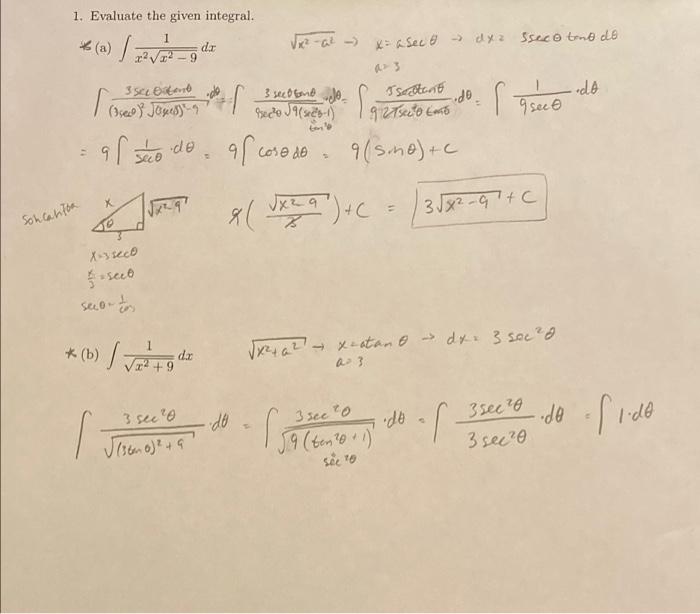 1. Evaluate the given integral.
* (a) ∫ 1/(x²√(x² − 9)) dx √(x²−a²) → x = a sec θ → dx = 3 sec θ tan θ dθ
a = 3
∫ 3 sec θ tan θ/((3 sec θ)² √((3 sec θ)² − 9)) · dθ = ∫ 3 sec θ tan θ/(9 sec² θ √(9(sec² θ − 1))) · dθ = ∫ 3 sec θ tan θ/(9 27 sec² θ tan θ) · dθ = ∫ 1/(9 sec θ) · dθ
tan² θ
= 9 ∫ 1/sec θ · dθ = 9 ∫ cos θ dθ = 9 (sin θ) + C
sohcahtoa x √(x² 9) θ 3 9 (√(x² 9)/3) + C = 3√(x² − 9) + C
x = 3 sec θ
x/3 = sec θ
sec θ = 1/cos
* (b) ∫ 1/√(x² + 9) dx √(x² + a²) → x = a tan θ → dx = 3 sec² θ
a = 3
∫ 3 sec² θ/√((3 tan θ)² + 9) · dθ = ∫ 3 sec² θ/√(9 (tan² θ + 1)) · dθ = ∫ 3 sec² θ/(3 sec² θ) · dθ = ∫ 1 · dθ
sec² θ